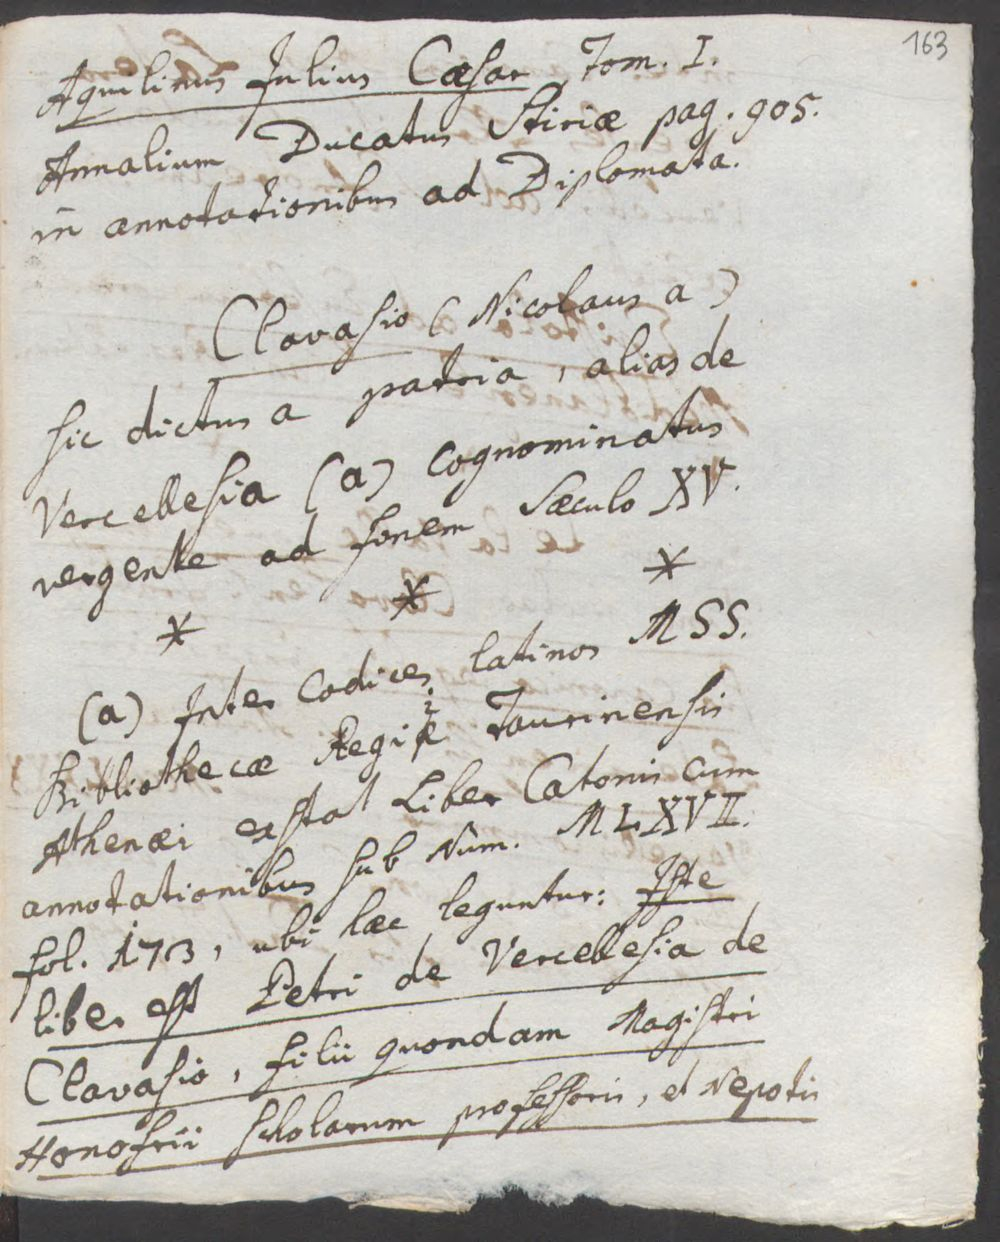 163
Aquilinus Julius Cæsar Tom. I.
Annalium Ducatus Stiriæ pag. 905.
in annotationibus ad Diplomata.
Clavasio (Nicolaus a)
sic dictus a patria, alias de
Vercellesia (a) cognominatus
vergente ad finem Sæculo XV.
* * *
(a) Inter Codices latinos MSS.
Bibliothecæ Regiæ Taurinensis
Athenæi exstat Liber Catonis cum
annotationibus sub Num. MLXVII.
fol. 173, ubi hæc leguntur: Iste
liber est Petri de Vercellesia de
Clavasio, filii quondam Magistri
Honofrii scholarum professoris, et Nepotis